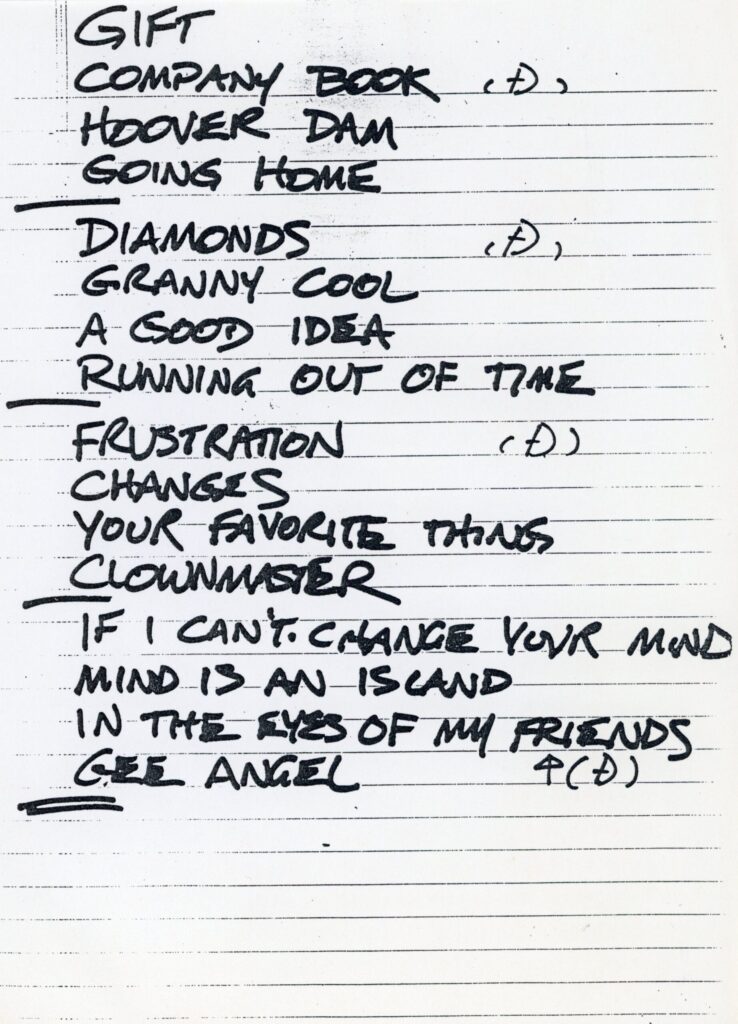 GIFT
COMPANY BOOK (D)
HOOVER DAM
GOING HOME
DIAMONDS (D)
GRANNY COOL
A GOOD IDEA
RUNNING OUT OF TIME
FRUSTRATION (D)
CHANGES
YOUR FAVORITE THING
CLOWNMASTER
IF I CAN'T CHANGE YOUR MIND
MIND IS AN ISLAND
IN THE EYES OF MY FRIENDS
GEE ANGEL ↑(D)